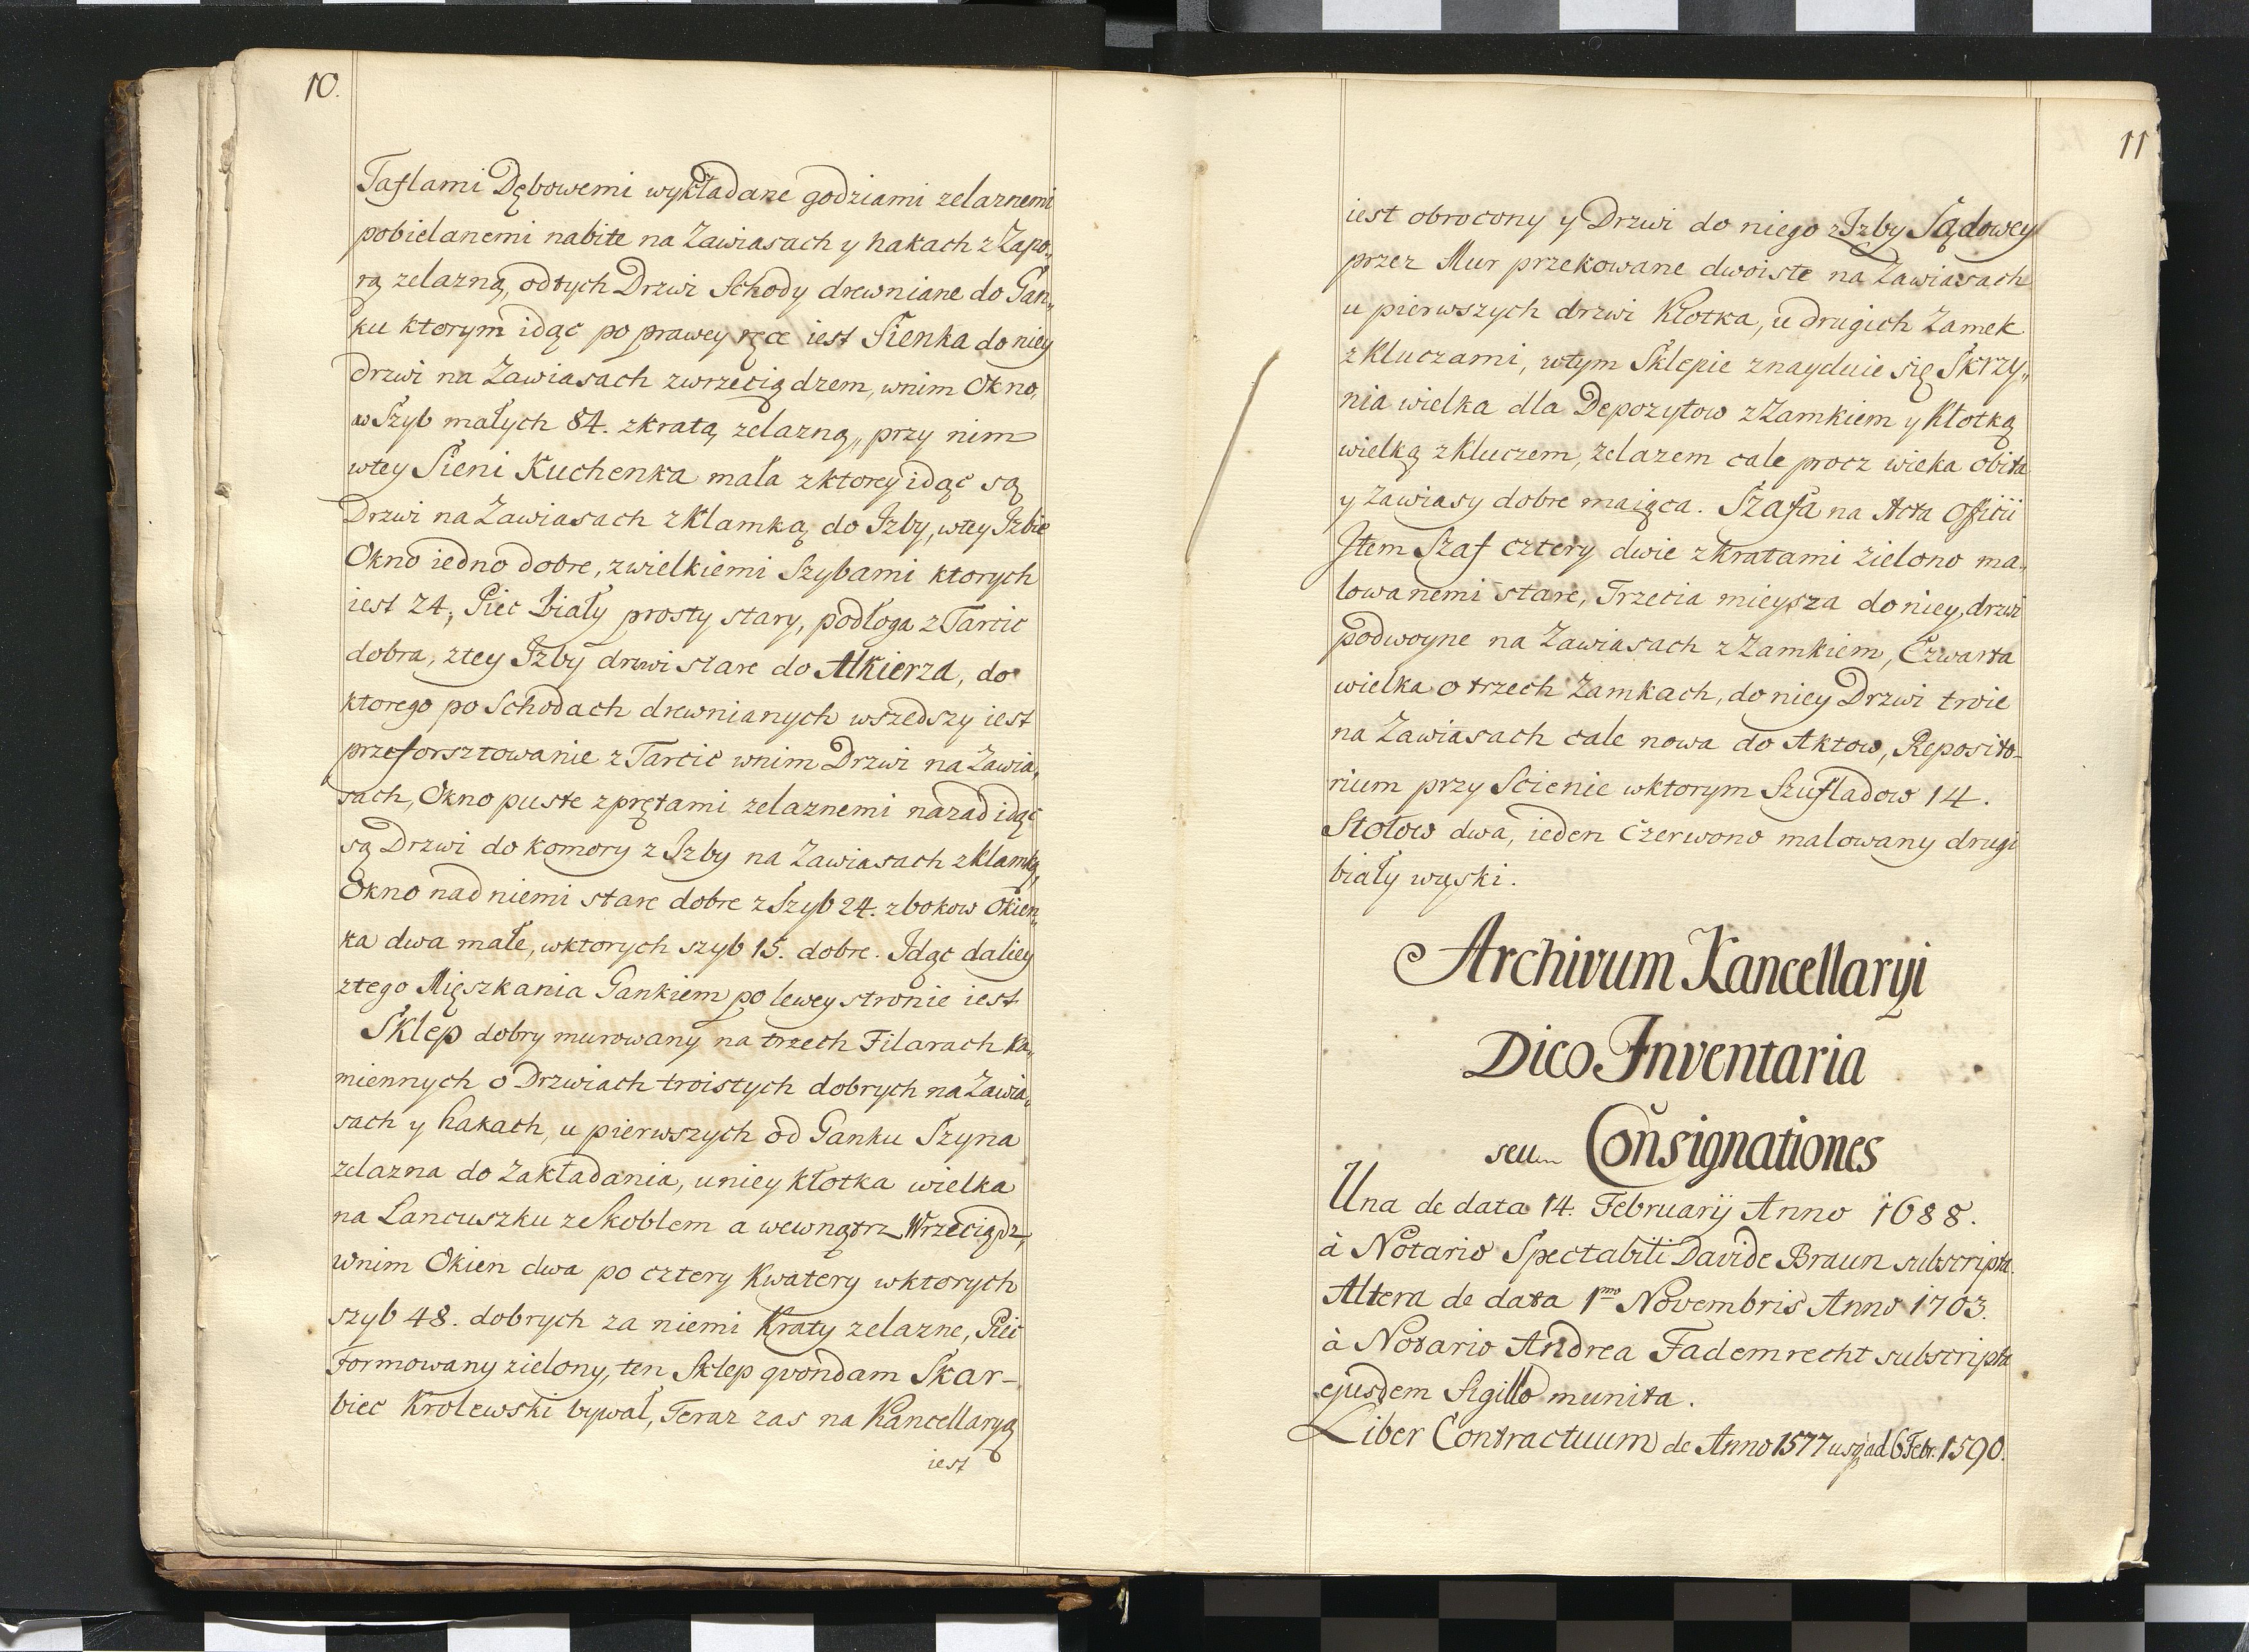 10.
Taflami Dębowemi wykładane godziami zelaznemi
pobielanemi nabite na Zawiasach y hakach z Zapo„
rą zelazną, od tych Drzwi Schody drewniane do Gan„
ku ktorym idąc po prawey ręce iest Sienka do niey
drzwi na Zawiasach z wrzeciądzem, wnim Okno,
w Szyb małych 84. zkratą zelazną, przy nim
wtey Sieni Kuchenka mała zktorey idąc są
Drzwi na Zawiasach z Klamką do Izby, wtey Izbie
Okno iedno dobre, zwielkiemi Szybami ktorych
iest 24, Piec biały prosty stary, podłoga z Tarcic
dobra, ztey Izby drzwi stare do Alkierza, do
ktorego po Schodach drewnianych wszedszy iest
przeforsztowanie z Tarcic wnim Drzwi na Zawia„
sach, Okno puste zprętami zelaznemi nazad idąc
są Drzwi do komory z Izby na Zawiasach z Klamką,
Okno nad niemi stare dobre z Szyb 24. zbokow Okien„
ka dwa małe, wktorych szyb 15. dobre. Idąc daliey
ztego Mięszkania Gankiem po lewey stronie iest
Sklep dobry murowany na trzech Filarach ka„
miennych o Drzwiach troistych dobrych na Zawia„
sach y hakach, u pierwszych od Ganku Szyna
zelazna do Zakładania, u niey kłotka wielka
na Lancuszku ze Skoblem a wewnątrz Wrzeciądz,
wnim Okien dwa po cztery Kwatery wktorych
szyb 48. dobrych za niemi Kraty zelazne, Piec
Formowany zielony, ten Sklep qvondam Skar-
biec Krolewski bywał, Teraz zas na Kancellaryą
iest
11
iest obrocony y Drzwi do niego z Izby Sądowey
przez Mur przekowane dwoiste na Zawiasach
u pierwszych drzwi Kłotka, u drugich Zamek
z Kluczami, wtym Sklepie znayduie się Skrzy„
nia wielka dla Depozytow z Zamkiem y Kłotką
wielką z Kluczem, zelazem cale procz wieka obita
y Zawiasy dobre maiąca. Szafa na Acta Officii
Item Szaf cztery dwie zkratami zielono ma„
lowanemi stare, Trzecia mieysza do niey, drzwi
podwoyne na Zawiasach z Zamkiem, Czwarta
wielka o trzech Zamkach, do niey Drzwi troie
na Zawiasach cale nowa do Aktow, Reposito-
rium przy Scienie wktorym Szufladow 14.
Stołow dwa, ieden Czerwono malowany drugi
biały wąski.
Archivum Kancellaryi
Dico Inventaria
seu Consignationes
Una de data 14. Februarij Anno 1688.
à Notario Spectabili Davide Braun subscripta.
Altera de data 1mo Novembris Anno 1703.
à Notario Andrea Fademrecht subscripta
ejusdem Sigillo munita.
Liber Contractuum de Anno 1577 usq ad 6 Febr. 1590.